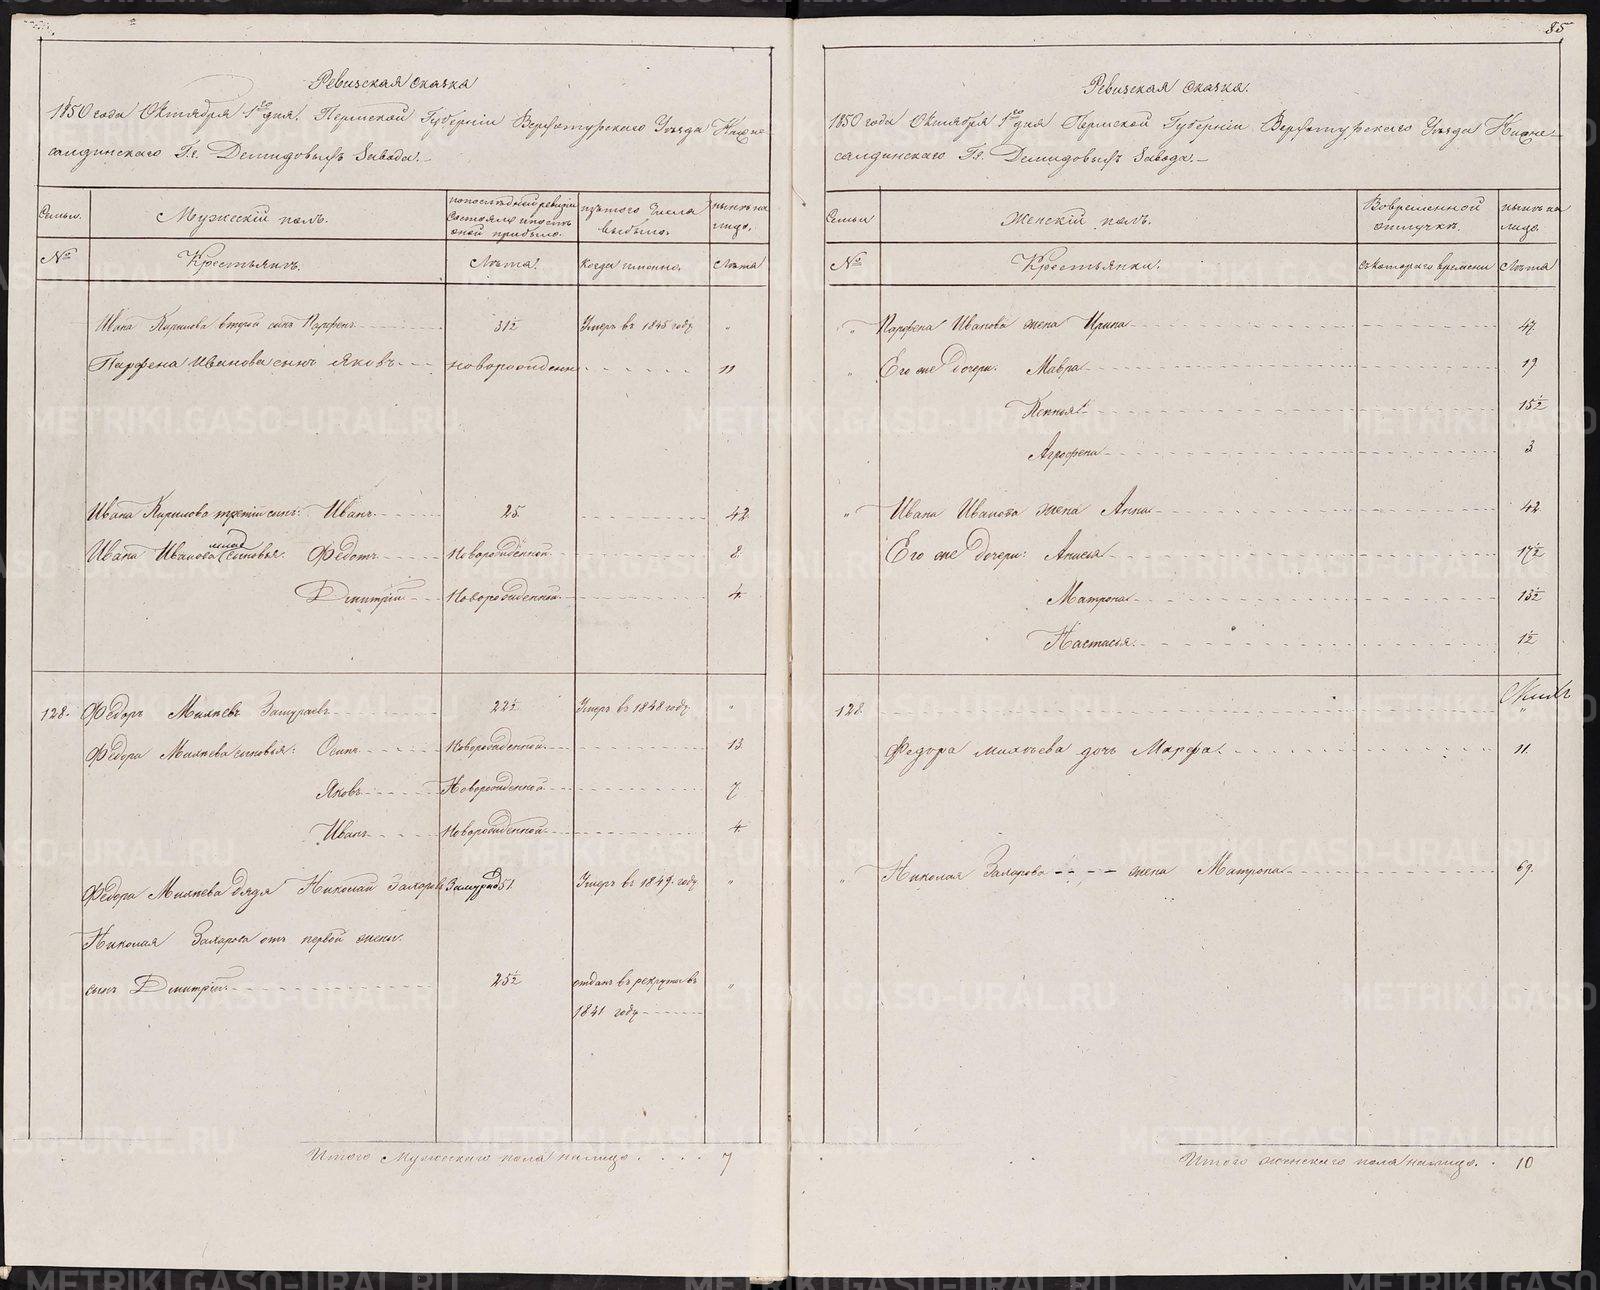 85
Ревизская сказка
1850 года Октября 1го дня. Пермской Губернiи Верхотурскаго Уѣзда Нижне
салдинскаго Гг. Демидовыхъ Завода.
Семьи.
Мужескiй полъ.
по последней ревизiи состояло и послѣ оной прибыло.
изъ того числа выбыло.
нынѣ на лицо.
№
Крестьянъ.
Лѣта.
Когда именно.
Лѣта
Ивана Кирилова второй сынъ Парфенъ 31½ Умеръ въ 1845 году "
Парфена Иванова сынъ Яковъ новорожденн 11
Ивана Кирилова третiй сынъ: Иванъ 25. 42.
Ивана Иванова сыновья: Федотъ Новорожденной 8.
Дмитрiй Новорожденной 4.
128. Федоръ Михѣевъ 22½ Умеръ въ 1848 году "
Федора Михѣева сыновья: Осипъ Новорожденной 13.
Яковъ Новорожденной 7
Иванъ Новорожденной 4.
Федора Михѣева дядя Николай Захаровъ 51. Умеръ въ 1849. году "
Николая Захарова отъ первой жены
сынъ Дмитрiй 25½ отданъ въ рекруты въ "
1841 году
Итого Мужескаго пола налицо 7
Ревизская сказка.
1850 года Октября 1го дня Пермской Губернiи Верхотурскаго Уѣзда Нижне
салдинскаго Гг. Демидовыхъ Завода.
Семьи
Женскiй полъ.
Во временной отлучкѣ.
нынѣ на лицо.
№
Крестьянки.
съ котораго времени
Лѣта
" Парфена Иванова жена Ирина 47.
" Его же дочери: Мавра 19
Ксенья 15½
Агрофена 3
" Ивана Иванова жена Анна 42.
Его же дочери: Анисья 17½
Матрона 13½
Настасья 1½
128. "
Федора михѣева дочь Марфа 11.
" Николая Захарова жена Матрона 69.
Итого женскаго пола налицо. 10